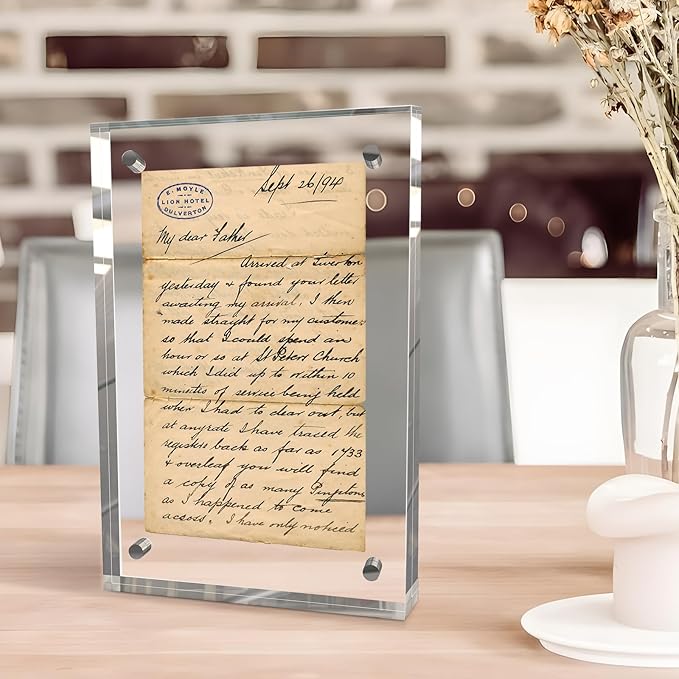 E. MOYLE
LION HOTEL
DULVERTON
Sept 26/94
My dear Father
Arrived at Tiverton
yesterday & found your letter
awaiting my arrival, I then
made straight for my customer
so that I could spend an
hour or so at St Peters Church
which I did up to within 10
minutes of service being held
when I had to clear out, but
at anyrate I have traced the
registers back as far as 1733
& overleaf you will find
a copy of as many Pimptons
as I happened to come
across. I have only noticed